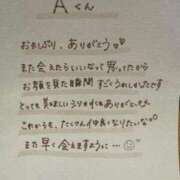 Aくん
おひさしぶり、ありがとう♡
また会えたらいいなって思ってたから
お顔を見た瞬間すごくうれしかったです
とっても美味しいうりずんもありがとう
これからも、たくさん仲良くなりたいな
また早く会えますように…